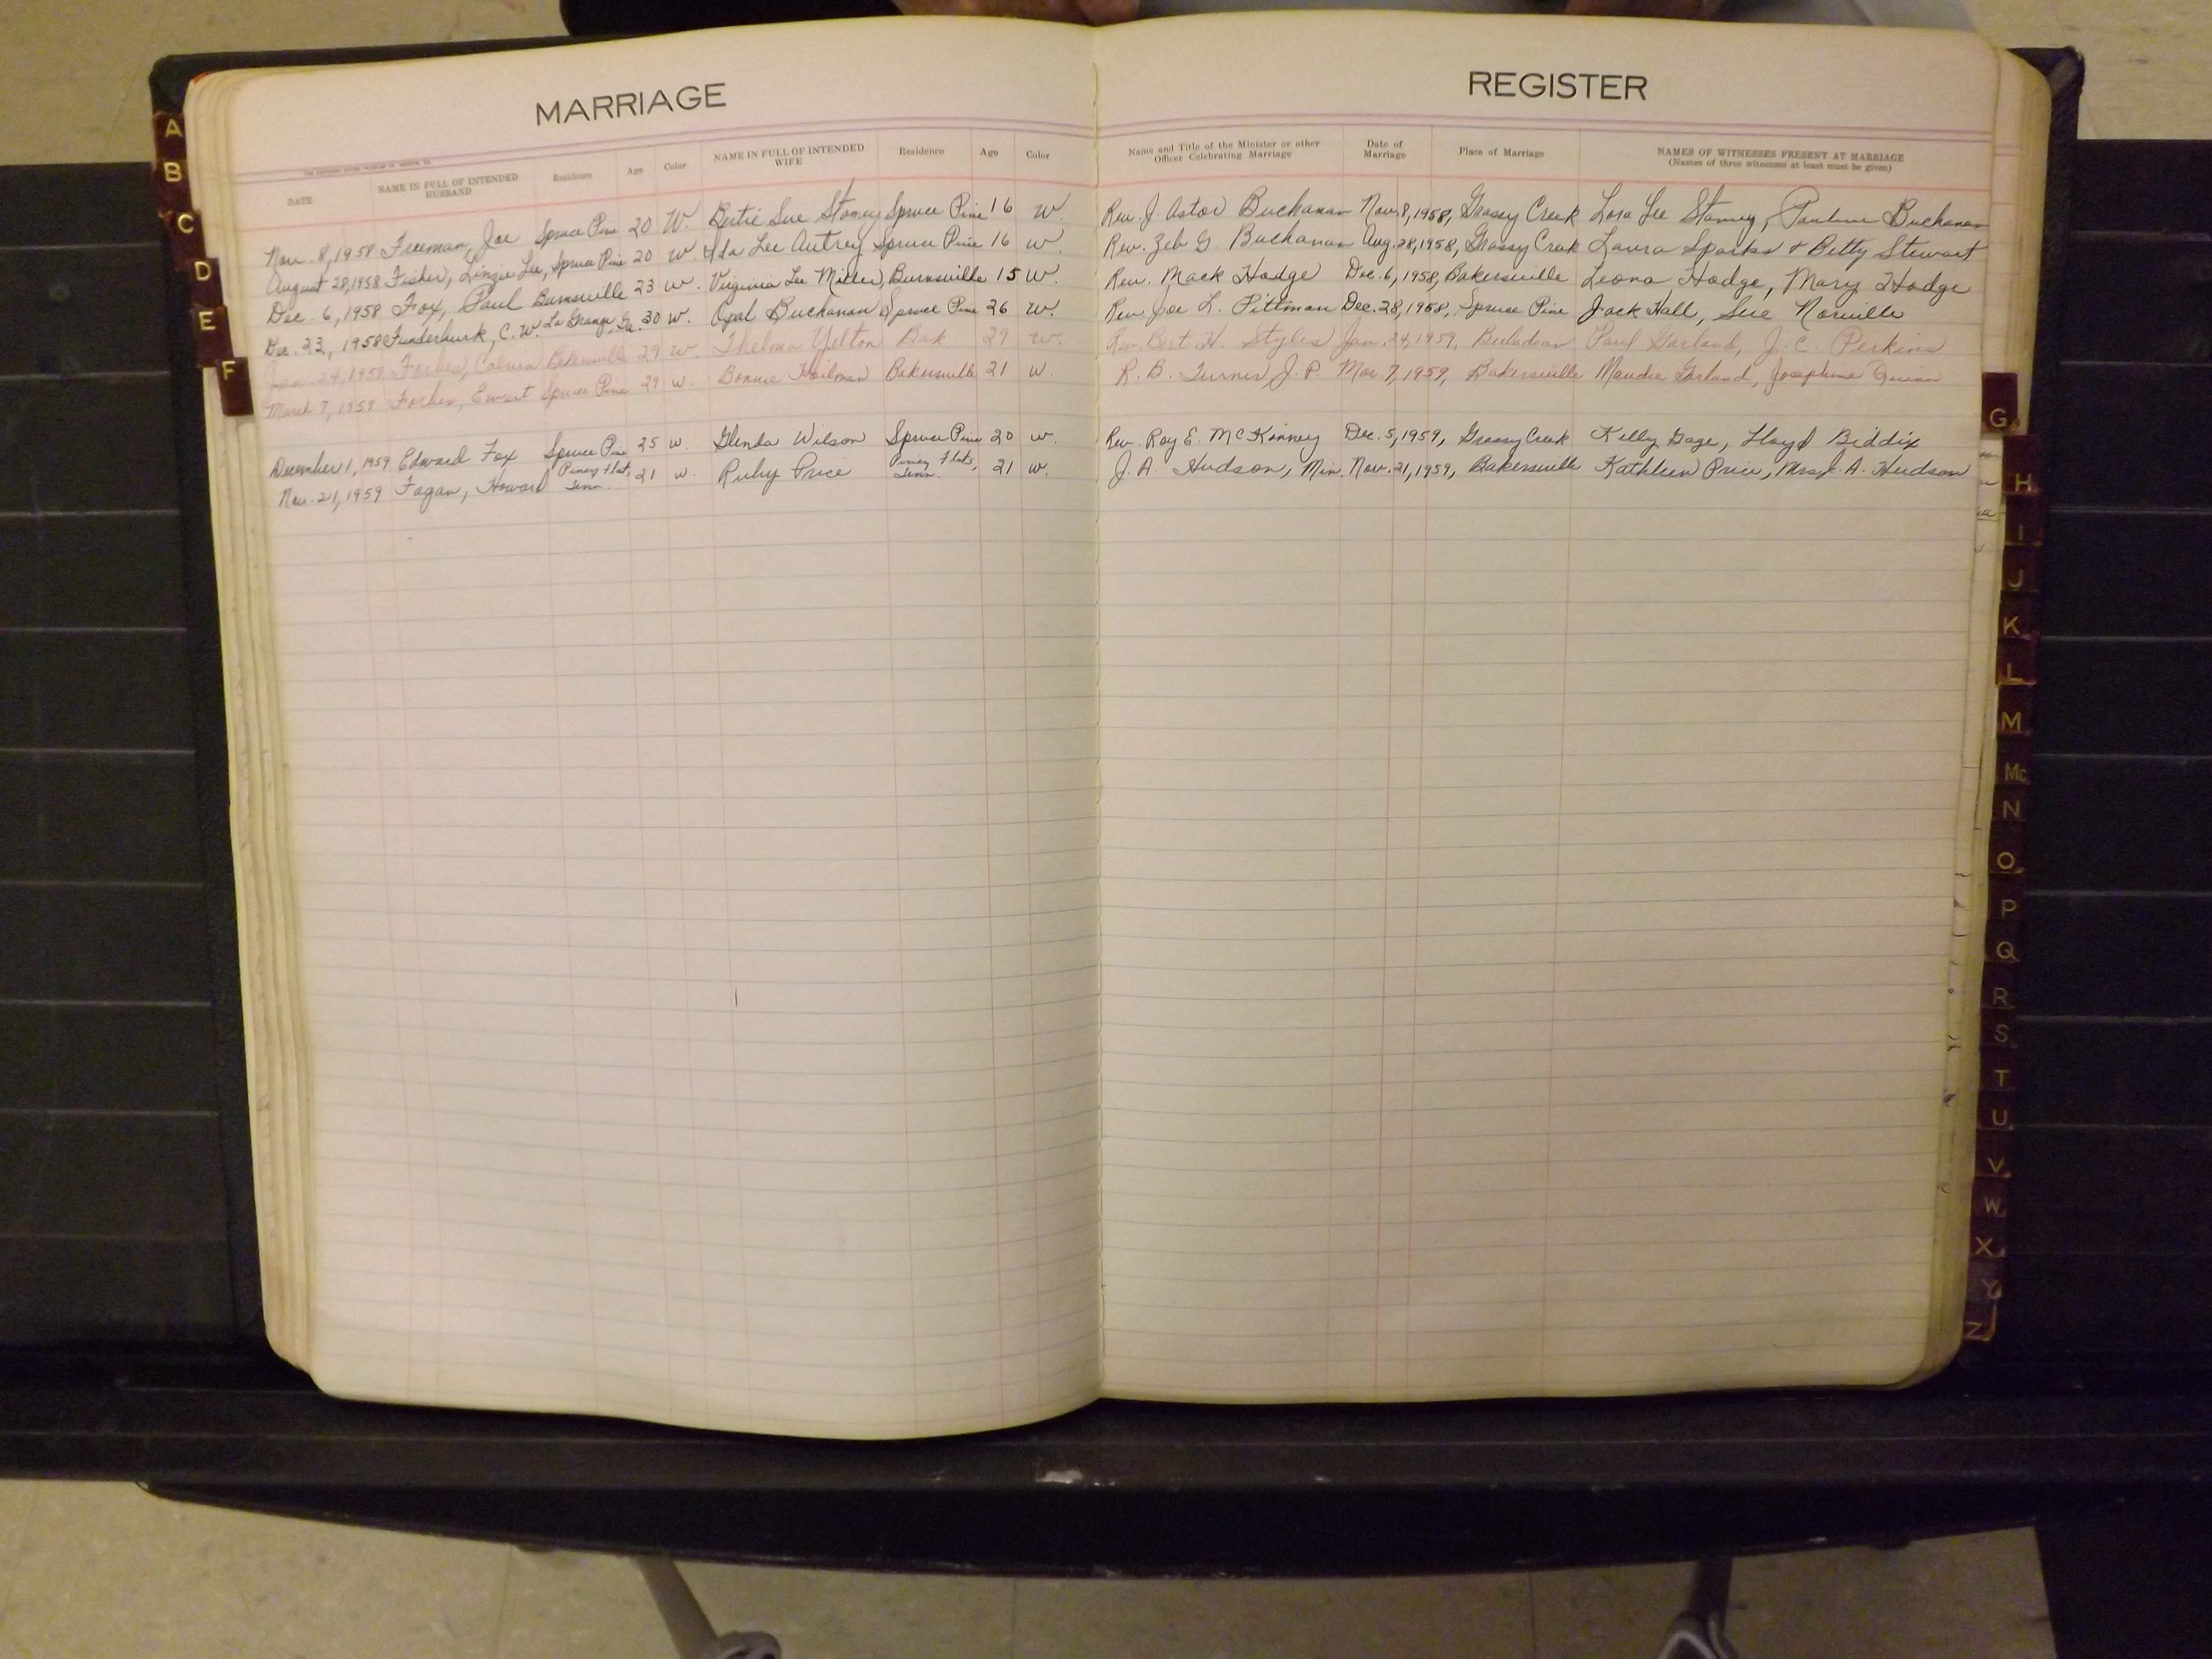 MARRIAGE
REGISTER
DATE NAME IN FULL OF INTENDED HUSBAND Residence Age Color NAME IN FULL OF INTENDED WIFE Residence Age Color Name and Title of the Minister or other Officer Celebrating Marriage Date of Marriage Place of Marriage NAMES OF WITNESSES PRESENT AT MARRIAGE (Names of three witnesses at least must be given)
Nov. 8, 1958 Freeman, Joe Spruce Pine 20 W. Bertie Sue Stamey Spruce Pine 16 W. Rev. J. Astor Buchanan Nov. 8, 1958, Grassy Creek Lora Lee Stamey, Pauline Buchanan
August 28, 1958 Fisher, Linzie Lee, Spruce Pine 20 W. Ida Lee Autrey Spruce Pine 16 W. Rev. Zeb G. Buchanan Aug. 28, 1958, Grassy Creek Laura Sparks & Betty Stewart
Dec. 6, 1958 Fox, Paul Burnsville 23 W. Virginia Lee Miller, Burnsville 15 W. Rev. Mack Hodge Dec. 6, 1958, Bakersville Leona Hodge, Mary Hodge
Dec. 23, 1958 Funderburk, C. W. La Grange, Ga. 30 W. Opal Buchanan Spruce Pine 26 W. Rev. Joe L. Pittman Dec. 28, 1958, Spruce Pine Jack Hall, Sue Norville
Jan. 24, 1959 Forbes, Calvin Bakersville 29 W. Thelma Yelton Bak 29 W. Rev. Bert H. Styles Jan. 24, 1959, Buladean Paul Garland, J. C. Perkins
March 7, 1959 Forbes, Ewart Spruce Pine 29 W. Bonnie Hoilman Bakersville 21 W. R. B. Turner J. P. Mar. 7, 1959, Bakersville Maudie Garland, Josephine Quinn
December 1, 1959 Edward Fox Spruce Pine 25 W. Glenda Wilson Spruce Pine 20 W. Rev. Roy E. McKinney Dec. 5, 1959, Grassy Creek Kelly Gage, Lloyd Biddix
Nov. 21, 1959 Fagan, Howard Piney Flat, Tenn. 21 W. Ruby Price Piney Flats, Tenn. 21 W. J. A. Hudson, Min. Nov. 21, 1959, Bakersville Kathleen Price, Mrs. J. A. Hudson
A
B
C
D
E
F
G
H
I
J
K
L
M
Mc
N
O
P
Q
R
S
T
U
V
W
X
Y
Z